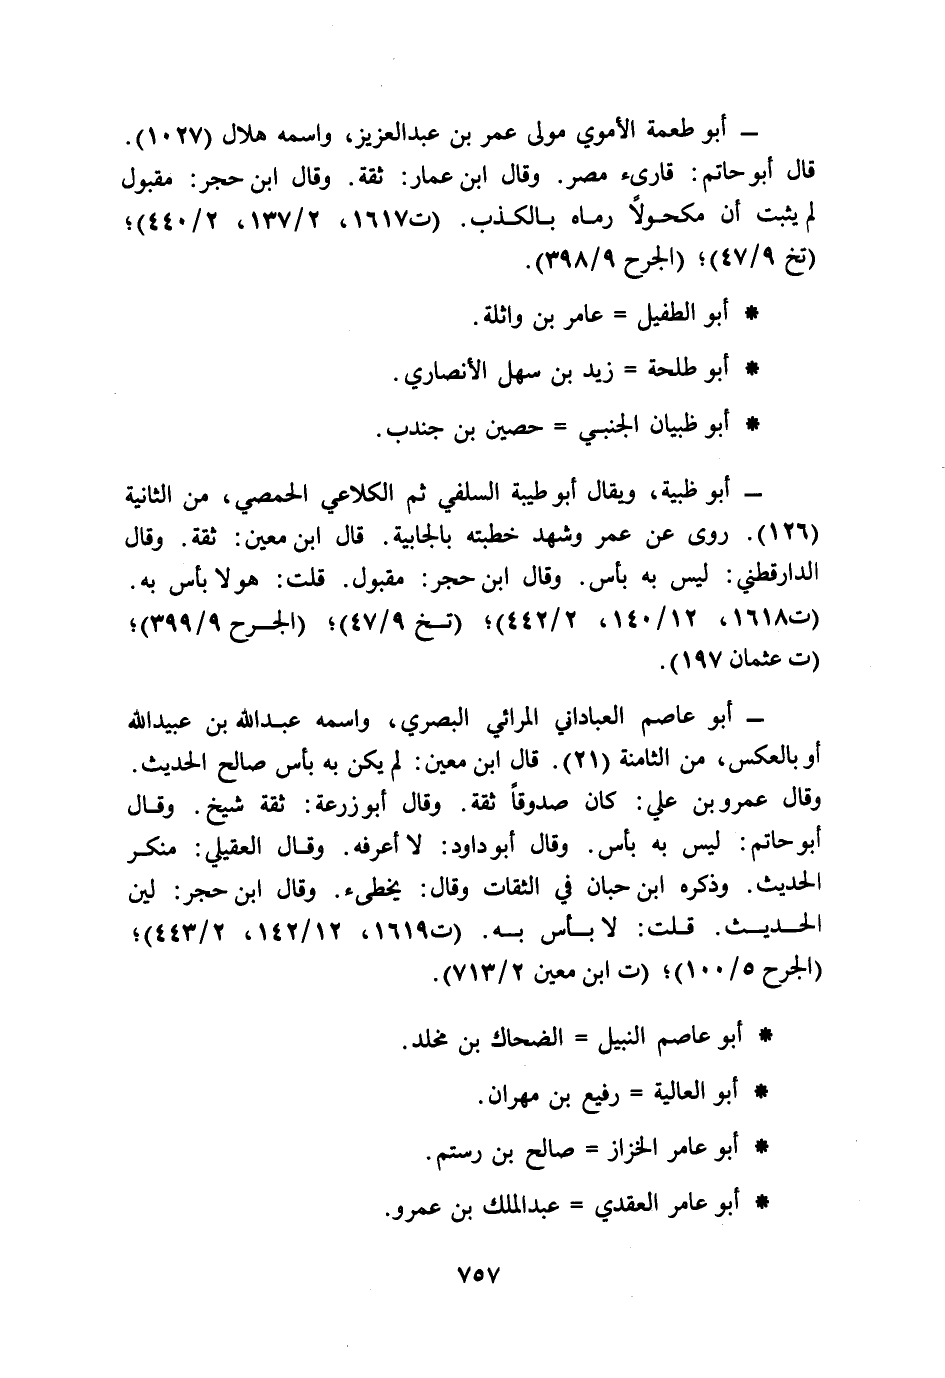 ـ أبو طعمة الأموي مولى عمر بن عبدالعزيز، واسمه هلال (١٠٢٧).
قال أبو حاتم: قارىء مصر. وقال ابن عمار: ثقة. وقال ابن حجر: مقبول
لم يثبت أن مكحولاً رماه بالكذب. (ت١٦١٧، ١٣٧/٢، ٤٤٠/٢)؛
(تخ ٤٧/٩)؛ (الجرح ٣٩٨/٩).
* أبو الطفيل = عامر بن واثلة.
* أبو طلحة = زيد بن سهل الأنصاري.
* أبو ظبيان الجنبي = حصين بن جندب.
ـ أبو ظبية، ويقال أبو طيبة السلفي ثم الكلاعي الحمصي، من الثانية
(١٢٦). روى عن عمر وشهد خطبته بالجابية. قال ابن معين: ثقة. وقال
الدارقطني: ليس به بأس. وقال ابن حجر: مقبول. قلت: هو لا بأس به.
(ت١٦١٨، ١٤٠/١٢، ٤٤٢/٢)؛ (تخ ٤٧/٩)؛ (الجرح ٣٩٩/٩)؛
(ت عثمان ١٩٧).
ـ أبو عاصم العباداني المرائي البصري، واسمه عبدالله بن عبيدالله
أو بالعكس، من الثامنة (٢١). قال ابن معين: لم يكن به بأس صالح الحديث.
وقال عمرو بن علي: كان صدوقاً ثقة. وقال أبو زرعة: ثقة شيخ. وقال
أبو حاتم: ليس به بأس. وقال أبو داود: لا أعرفه. وقال العقيلي: منكر
الحديث. وذكره ابن حبان في الثقات وقال: يخطىء. وقال ابن حجر: لين
الحديث. قلت: لا بأس به. (ت١٦١٩، ١٤٢/١٢، ٤٤٣/٢)؛
(الجرح ١٠٠/٥)؛ (ت ابن معين ٧١٣/٢).
* أبو عاصم النبيل = الضحاك بن مخلد.
* أبو العالية = رفيع بن مهران.
* أبو عامر الخزاز = صالح بن رستم.
* أبو عامر العقدي = عبدالملك بن عمرو.
٧٥٧